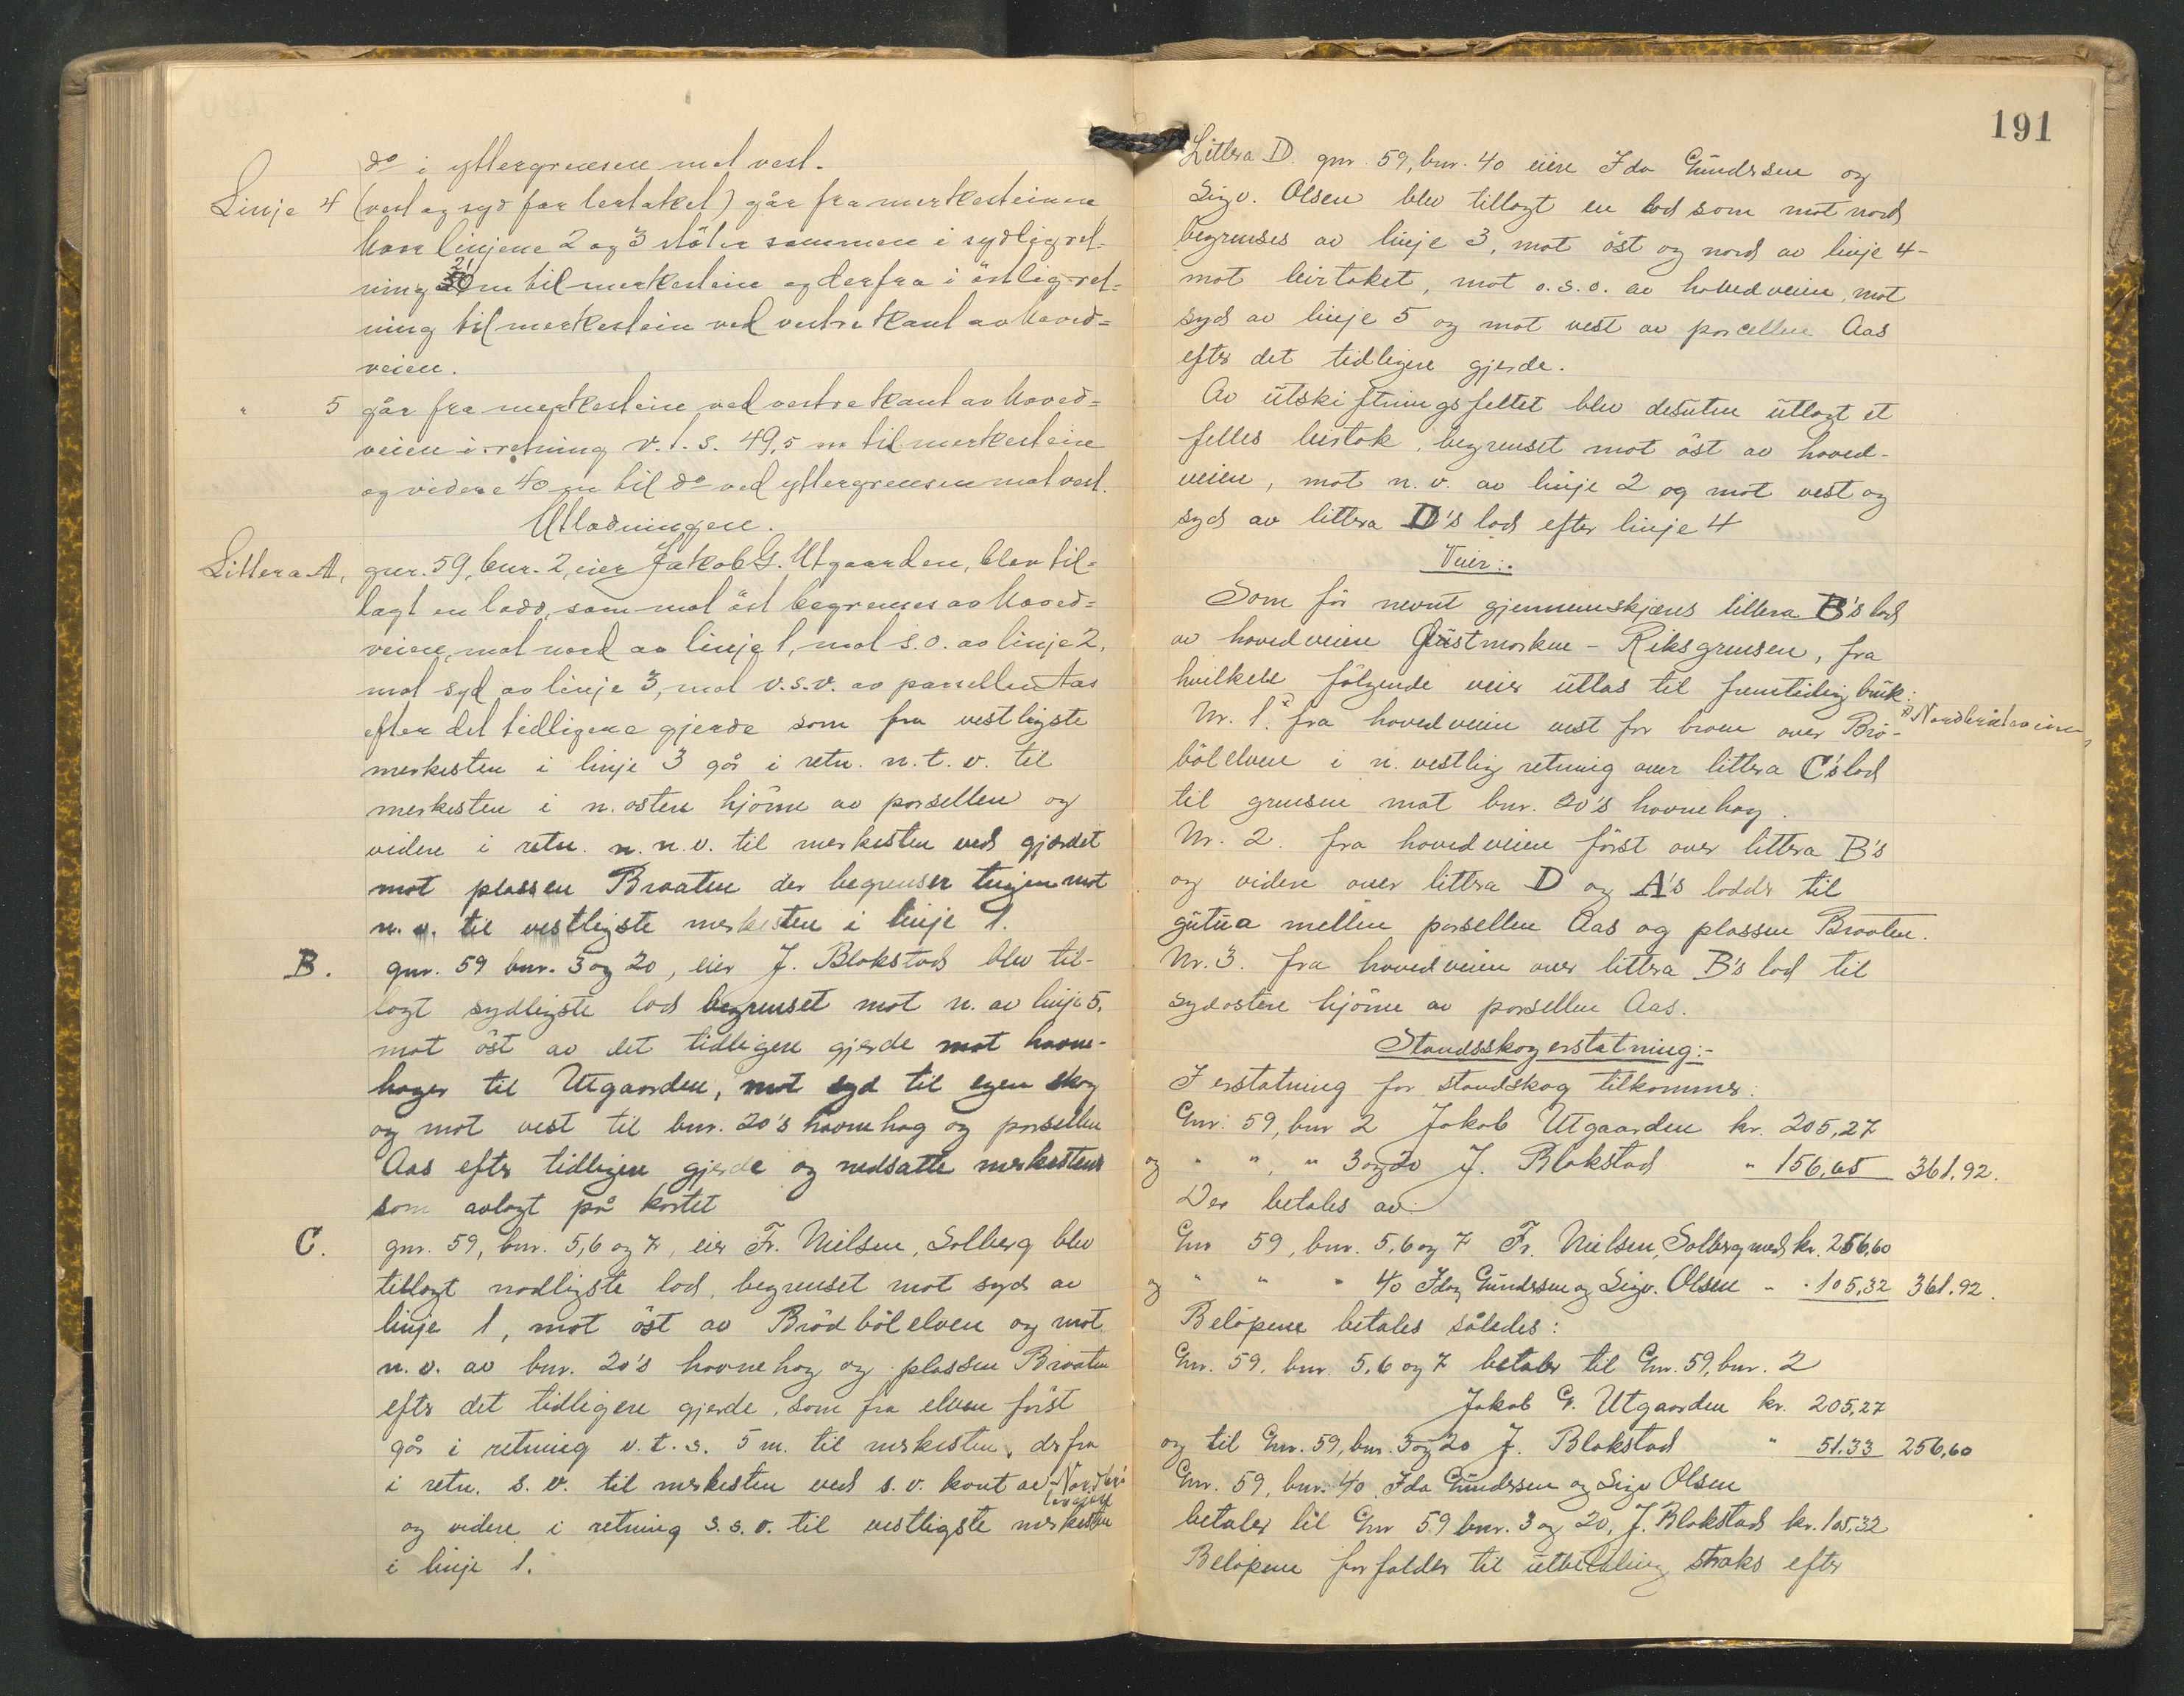 do i yttergrensen mot vest.
Linje 4 (vest og syd for lertaket) går fra merkesteinen
hvor linjene 2 og 3 støter sammen i sydlig ret-
ning 21 m til merkestein og derfra i østlig ret-
ning til merkestein ved vestre kant av hoved-
veien.
" 5 går fra merkestein ved vestre kant av hoved-
veien i retning v.t.s. 49,5 m til merkestein
og videre 40 m til do ved yttergrensen mot vest.
Utlodningen.
Littera A, gnr. 59, bnr. 2, eier Jakob G. Utgaarden, blev til-
lagt en lodd, som mot öst begrenses av hoved-
veien, mot nord av linje 1, mot s.o. av linje 2,
mot syd av linje 3, mot v.s.v. av parsellen Aas
efter det tidligere gjerde som fra vestligste
merkesten i linje 3 går i retn. n.t.v. til
merkesten i n.ostre hjörne av parsellen og
videre i retn. n.n.v. til merkesten ved gjerdet
mot plassen Braaten der begrenser teigen mot
n.v. til vestligste merkesten i linje 1.
B. gnr. 59 bnr. 3 og 20, eier J. Blakstad blev til-
lagt sydligste lod begrenset mot n. av linje 5,
mot öst av det tidligere gjerde mot havne-
hager til Utgaarden, mot syd til egen skog
og mot vest til bnr. 20's havnehag og parsellen
Aas efter tidligere gjerde og nedsatte merkestener
som avlagt på kartet
C. gnr. 59, bnr. 5, 6 og 7, eier Fr. Nielsen, Solberg blev
tillagt nordligste lod, begrenset mot syd av
linje 1, mot öst av Brödbölelven og mot
n.v. av bnr. 20's havnehag og plassen Braaten
efter det tidligere gjerde, som fra elven först
går i retning v.t.s. 5 m. til merkesten, derfra
i retn. s.v. til merkesten ved s.v. kant av Nordbrå-
taveien
og videre i retning s.s.v. til vestligste merkesten
i linje 1.
191
Littera D. gnr. 59, bnr. 40 eiere Ida Gundersen og
Sigv. Olsen blev tillagt en lod som mot nord
begrenses av linje 3, mot öst og nord av linje 4-
mot leirtaket, mot o.s.o. av hovedveien, mot
syd av linje 5 og mot vest av parcellen Aas
efter det tidligere gjerde.
Av utskiftningsfeltet blev desuten utlagt et
felles leirtak, begrenset mot öst av hoved-
veien, mot n.v. av linje 2 og mot vest og
syd av littera D's lod efter linje 4
Veier:-
Som för nevnt gjennemskjæres littera B's lod
av hovedveien Gustmorken - Riksgrensen, fra
hvilken fölgende veier utlas til fremtidig bruk:
Nr. 1. x fra hovedveien vest for broen over Brö- x Nordbråtaveien,
bölelven i n.vestlig retning over littera C's lod
til grensen mot bnr. 20's havnehag.
Nr. 2. fra hovedveien först over littera B's
og videre over littera D og A's lodder til
gutua mellem parsellen Aas og plassen Braaten.
Nr. 3. fra hovedveien over littera B's lod til
sydostre hjörne av parsellen Aas.
Standsskogerstatning:-
I erstatning for standskog tilkommer:
Gnr. 59, bnr 2 Jakob Utgaarden kr. 205,27
og " " , " 3 og 20 J. Blakstad " 156,65 361,92.
Der betales av:
Gnr 59, bnr. 5, 6 og 7 Fr. Nielsen, Solberg med kr. 256,60
og " " " 40 Ida Gundersen og Sigv. Olsen " " 105,32 361.92.
Belöpene betales således:
Gnr. 59, bnr. 5, 6 og 7 betaler til Gnr. 59, bnr. 2
Jakob G. Utgaarden kr. 205,27
og til Gnr. 59, bnr. 3 og 20 J. Blakstad " 51.33 256,60
Gnr. 59, bnr. 40 Ida Gundersen og Sigv Olsen
betaler til Gnr 59 bnr. 3 og 20, J. Blakstad kr. 105,32
Belöpene forfalder til utbetaling straks efter